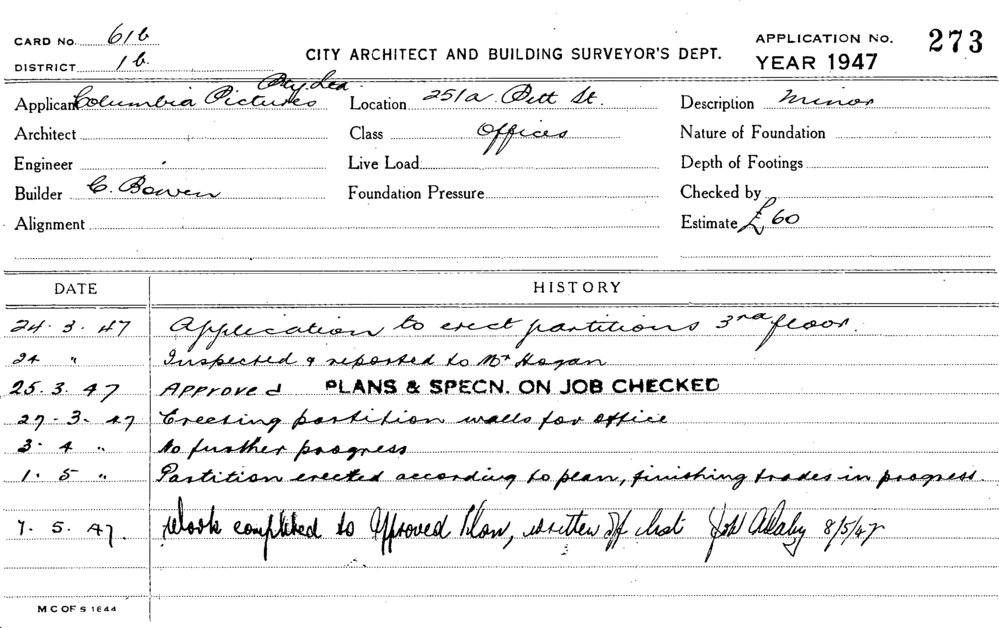 CARD No. 61b
DISTRICT 1b.
CITY ARCHITECT AND BUILDING SURVEYOR'S DEPT.
APPLICATION No. 273
YEAR 1947
Applicant Columbia Pictures Pty. Ltd
Location 251a Pitt St.
Description Minor
Architect
Class Offices
Nature of Foundation
Engineer
Live Load
Depth of Footings
Builder C. Bowen
Foundation Pressure
Checked by
Alignment
Estimate £60
DATE HISTORY
24. 3. 47 Application to erect partitions 3rd floor.
24 " Inspected & reported to Mr Hogan
25. 3. 47 Approved PLANS & SPECN. ON JOB CHECKED
27. 3. 47 Erecting partition walls for office
3. 4 " No further progress
1. 5 " Partition erected according to plan, finishing trades in progress.
7. 5. 47. Work completed to Approved Plan, written off list 8/5/47
M C OF S 1844